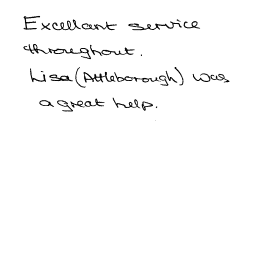 Excellent service
throughout.
Lisa (Attleborough) was
a great help.